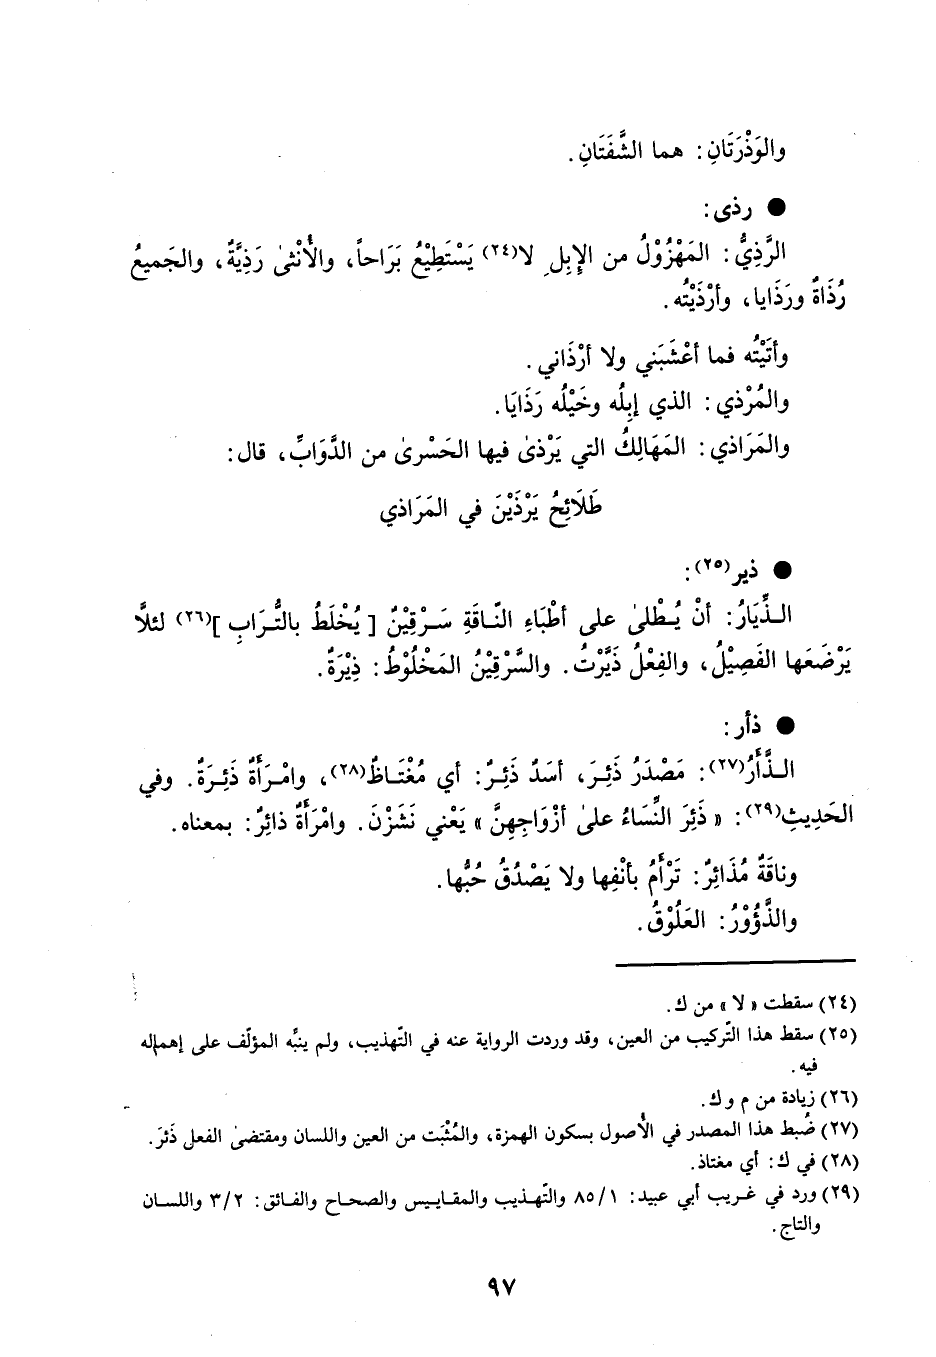 والوَذْرَتَانِ: هما الشَّفَتَانِ.
● رذى:
الرَّذِيُّ: المَهْزُوْلُ من الإِبِلِ لا(٢٤) يَسْتَطِيْعُ بَرَاحاً، والأُنْثىٰ رَذِيَّةٌ، والجَميعُ
رُذَاةٌ ورَذَايا، وأرْذَيْتُه.
وأتَيْتُه فما أعْشَبَني ولا أرْذَاني.
والمُرْذي: الذي إبِلُه وخَيْلُه رَذَايَا.
والمَرَاذي: المَهَالِكُ التي يَرْذىٰ فيها الحَسْرىٰ من الدَّوَابِّ، قال:
طَلَائِحُ يَرْذَيْنَ في المَرَاذي
● ذير(٢٥):
الـذِّيَارُ: أنْ يُـطْلىٰ على أطْبَاءِ النّـاقَةِ سَـرْقِيْنٌ [ يُخْلَطُ بالتُّـرَابِ ](٢٦) لئلاَّ
يَرْضَعَها الفَصِيْلُ، والفِعْلُ ذَيَّرْتُ. والسَّرْقِيْنُ المَخْلُوْطُ: ذِيْرَةٌ.
● ذأر:
الـذَّأَرُ(٢٧): مَصْدَرُ ذَئِرَ، أسَدٌ ذَئِرٌ: أي مُغْتَـاظٌ(٢٨)، وامْـرَأَةٌ ذَئِـرَةٌ. وفي
الحَدِيثِ(٢٩): « ذَئِرَ النِّسَاءُ علىٰ أزْوَاجِهِنَّ » يَعْني نَشَزْنَ. وامْرَأَةٌ ذائِرٌ: بمعناه.
وناقَةٌ مُذَائِرٌ: تَرْأَمُ بأنْفِها ولا يَصْدُقُ حُبُّها.
والذَّؤُوْرُ: العَلُوْقُ.
(٢٤) سقطت « لا » من ك.
(٢٥) سقط هذا التّركيب من العين، وقد وردت الرواية عنه في التّهذيب، ولم ينبِّه المؤلّف على إهماله
فيه.
(٢٦) زيادة من م و ك.
(٢٧) ضُبط هذا المصدر في الأُصول بسكون الهمزة، والمُثْبَت من العين واللسان ومقتضىٰ الفعل ذَئرَ.
(٢٨) في ك: أي مغتاذ.
(٢٩) ورد في غـريب أبي عبيد: ٨٥/١ والتّهـذيب والمقـاييـس والصحـاح والفـائق: ٣/٢ واللسـان
والتاج.
٩٧